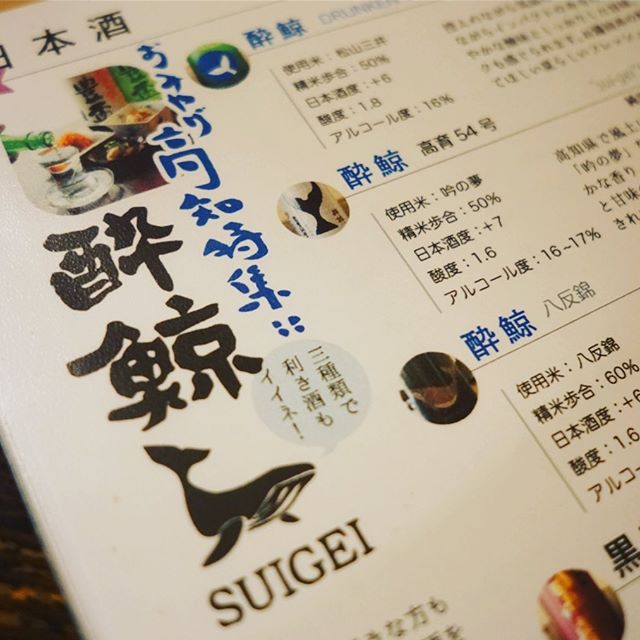 日本酒
おみやげ高知特集!!
酔鯨
三種類で
利き酒も
イイネ!
SUIGEI
酔鯨 DRUNKEN
使用米:松山三井
精米歩合:50%
日本酒度:+6
酸度:1.8
アルコール度:16%
酔鯨 高育54号
使用米:吟の夢
精米歩合:50%
日本酒度:+7
酸度:1.6
アルコール度:16~17%
高知県で
「吟の夢」
かな香り
と甘味
され
酔鯨 八反錦
使用米:八反錦
精米歩合:60%
日本酒度:+6
酸度:1.6
アルコ
黒
きな方も